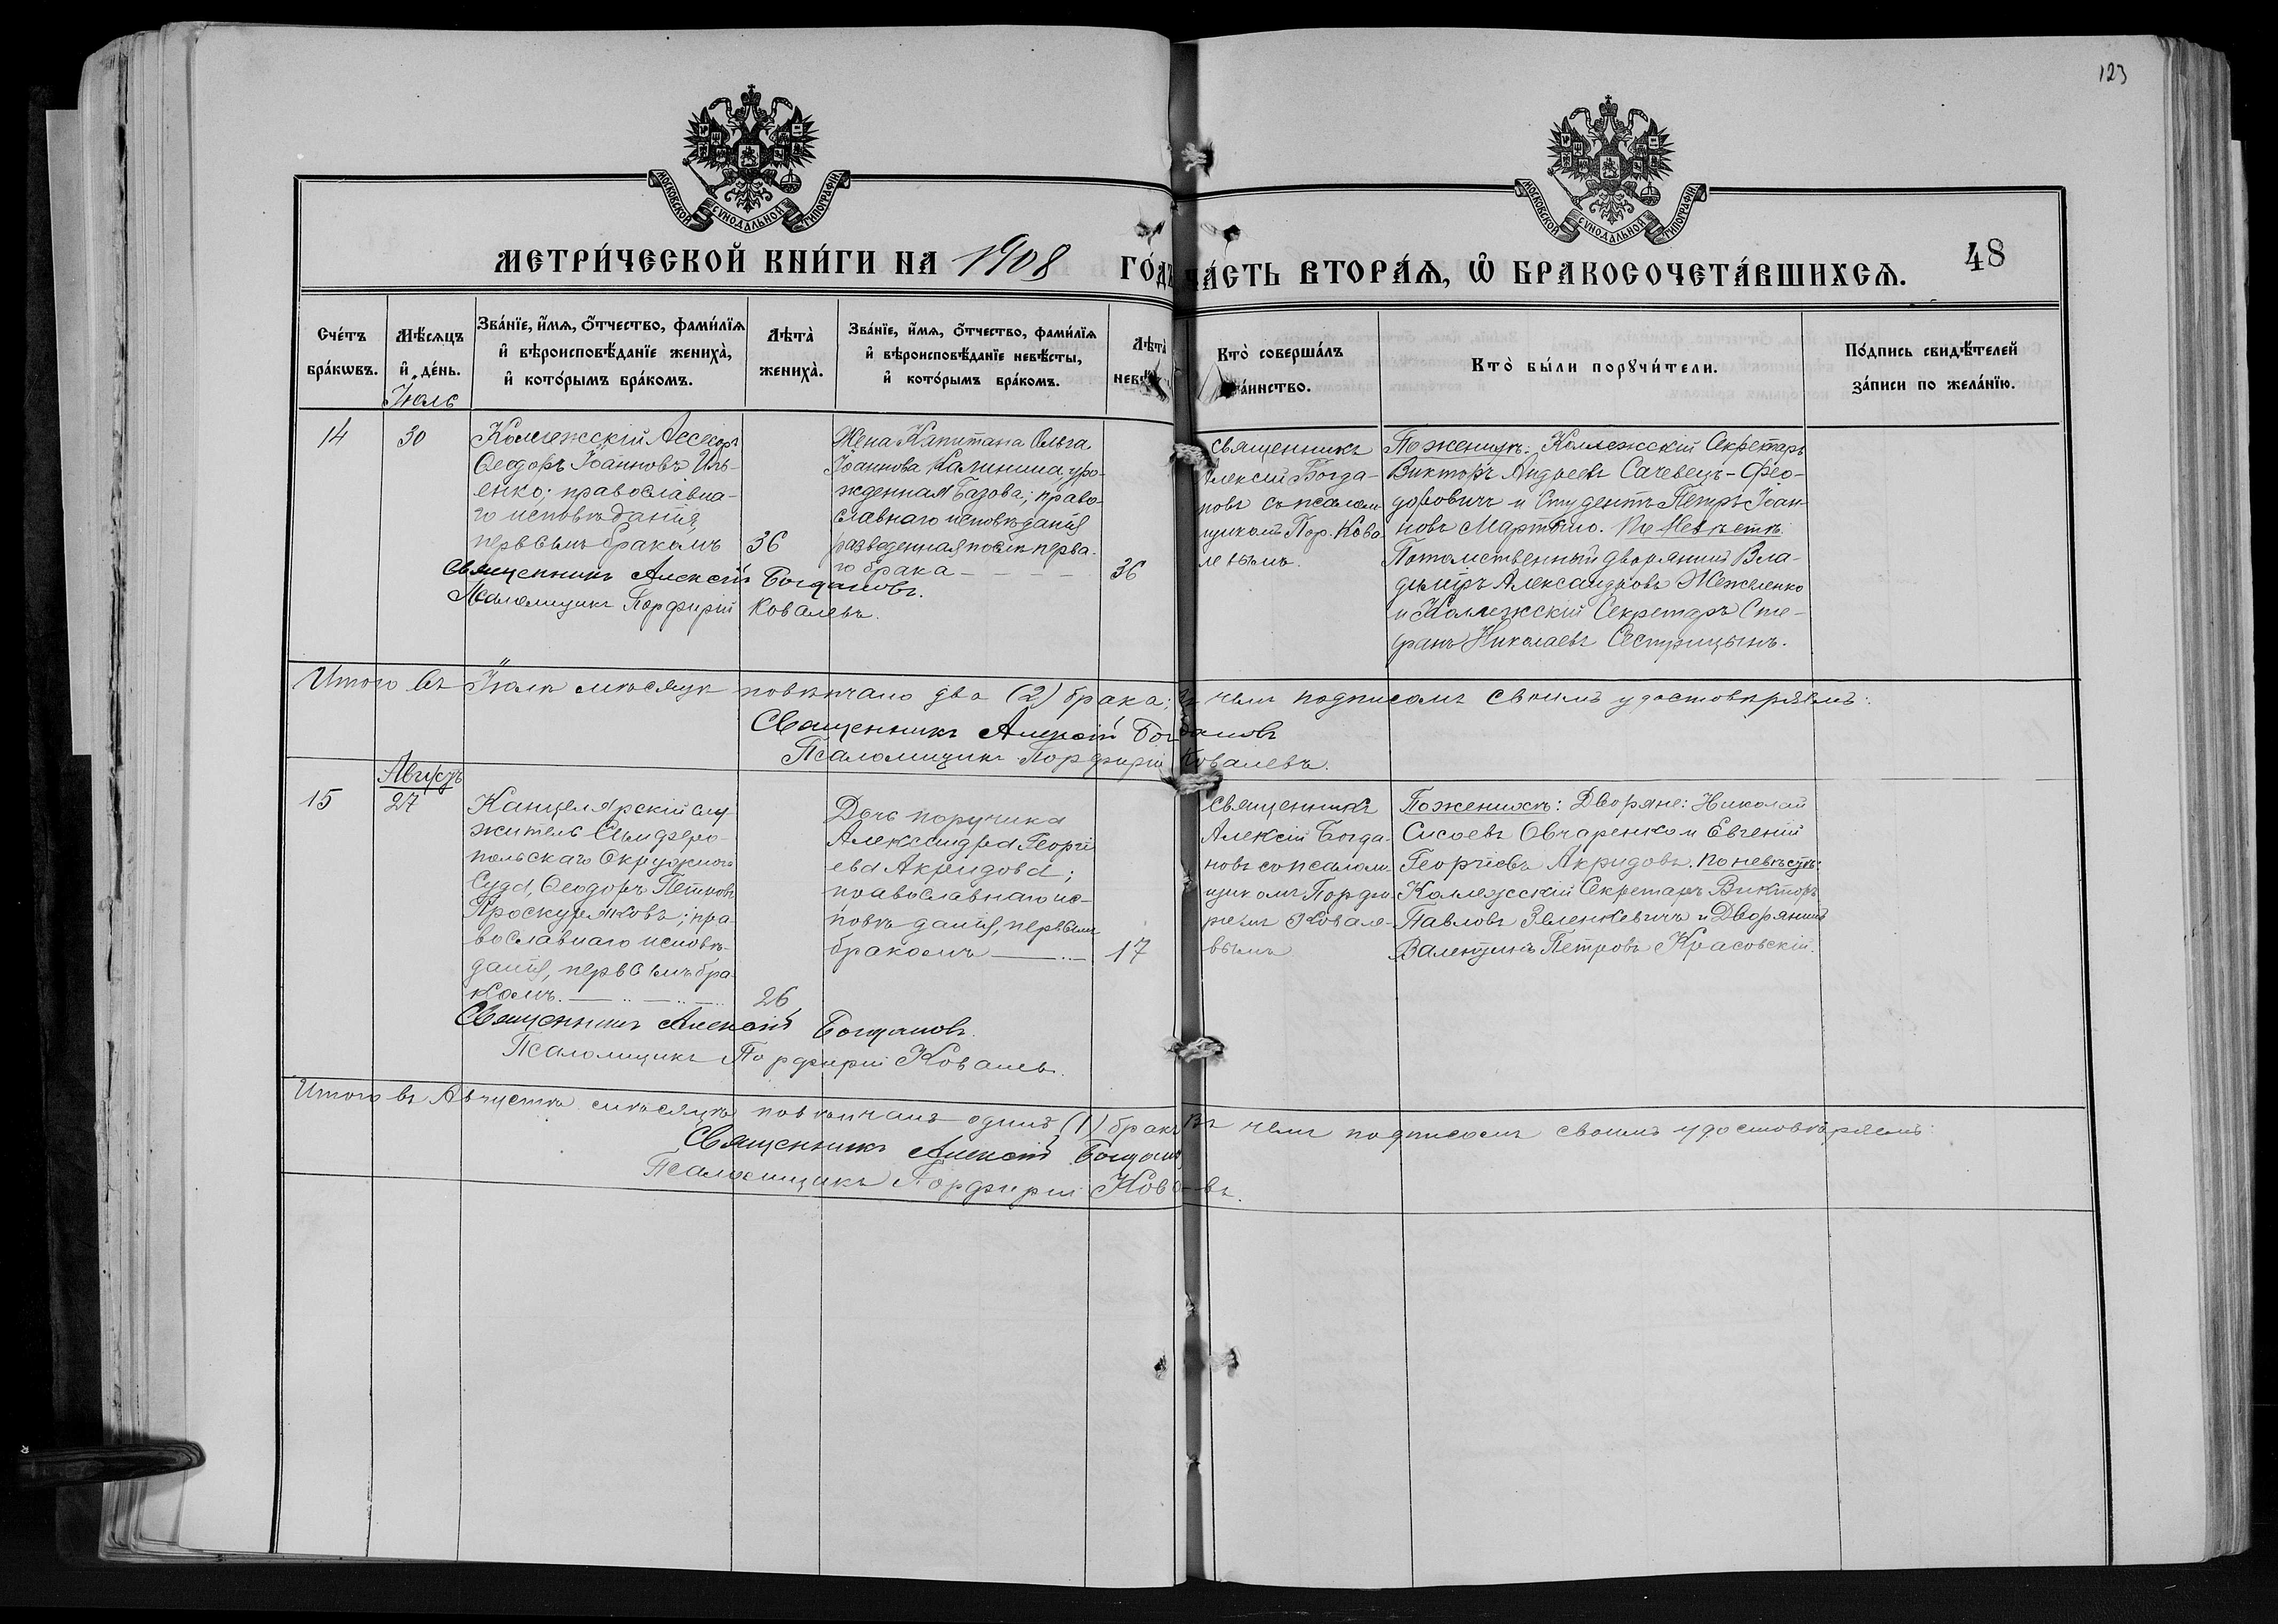 123
МОСКОВСКОЙ СѴНОДАЛЬНОЙ ТИПОГРАФІИ
МОСКОВСКОЙ СѴНОДАЛЬНОЙ ТИПОГРАФІИ
МЕТРИ́ЧЕСКОЙ КНИ́ГИ НА 1908 ГО́ДЪ ЧА́СТЬ ВТОРА́Я, Ѡ БРАКОСОЧЕТА́ВШИХСЯ.
48
Сче́тъ
бра́кѡвъ.
Мѣ́сяцъ
и҆ де́нь.
Зва́нїе, и҆́мя, ѻ҆́тчество, фами́лїя
и҆ вѣроисповѣ́данїе жениха̀,
и҆ кото́рымъ бра́комъ.
Лѣта̀
жениха̀.
Зва́нїе, и҆́мя, ѻ҆́тчество, фами́лїя
и҆ вѣроисповѣ́данїе невѣ́сты,
и҆ кото́рымъ бра́комъ.
Лѣта̀
невѣ
Кто̀ соверша́лъ
та́инство.
Кто̀ бы́ли порꙋчи́тели.
По́дпись свидѣ́телей
за́писи по жела́нїю.
Іюль
14
30
Коллежскій Ассесоръ
Ѳеодоръ Іоанновъ Иль-
енко; православна-
го исповѣданія,
первымъ бракомъ
36
Жена Капитана Ольга
Іоаннова Калинина, уро-
жденная Базова; право-
славнаго исповѣданія
разведенная послѣ перва-
го брака
36
Священникъ
Алексій Богда-
новъ съ псалом-
щикомъ Пор. Кова-
левымъ.
По женихѣ: Коллежскій Секретарь
Викторъ Андреевъ Сачевецъ-Фео-
доровичъ и Студентъ Петръ Іоан-
новъ Мартыно. По Невѣстѣ:
Потомственный дворянинъ Вла-
диміръ Александровъ Жежеленко
и Коллежскій Секретарь Сте-
фанъ Николаевъ Сестрицынъ.
Священникъ Алексій Богдановъ.
Псаломщикъ Порфирій Ковалевъ.
Итого въ Іюлѣ мѣсяцѣ повѣнчано два (2) брака; въ чемъ подписомъ своимъ удостовѣряемъ:
Священникъ Алексій Богдановъ
Псаломщикъ Порфирій Ковалевъ.
Августъ
15
27
Канцелярскій слу-
житель Симферо-
польскаго Окружнаго
Суда, Ѳеодоръ Петровъ
Проскурняковъ; пра-
вославнаго исповѣ-
данія, первымъ бра-
комъ.
26
Дочь поручика
Александра Георгі-
ева Акридова;
православнаго ис-
повѣданія, первымъ
бракомъ
17
Священникъ
Алексій Богда-
новъ съ псалом-
щикомъ Порфи-
ріемъ Ковале-
вымъ
По женихѣ: Дворяне: Николай
Сисоевъ Овчаренко и Евгеній
Георгіевъ Акридовъ. По невѣстѣ:
Коллежскій Секретарь Викторъ
Павловъ Зеленкевичъ и Дворянинъ
Валентинъ Петровъ Красовскій.
Священникъ Алексій Богдановъ.
Псаломщикъ Порфирій Ковалевъ.
Итого въ Августѣ мѣсяцѣ повѣнчанъ одинъ (1) бракъ въ чемъ подписомъ своимъ удостовѣряемъ:
Священникъ Алексій Богдановъ
Псаломщикъ Порфирій Ковалевъ.